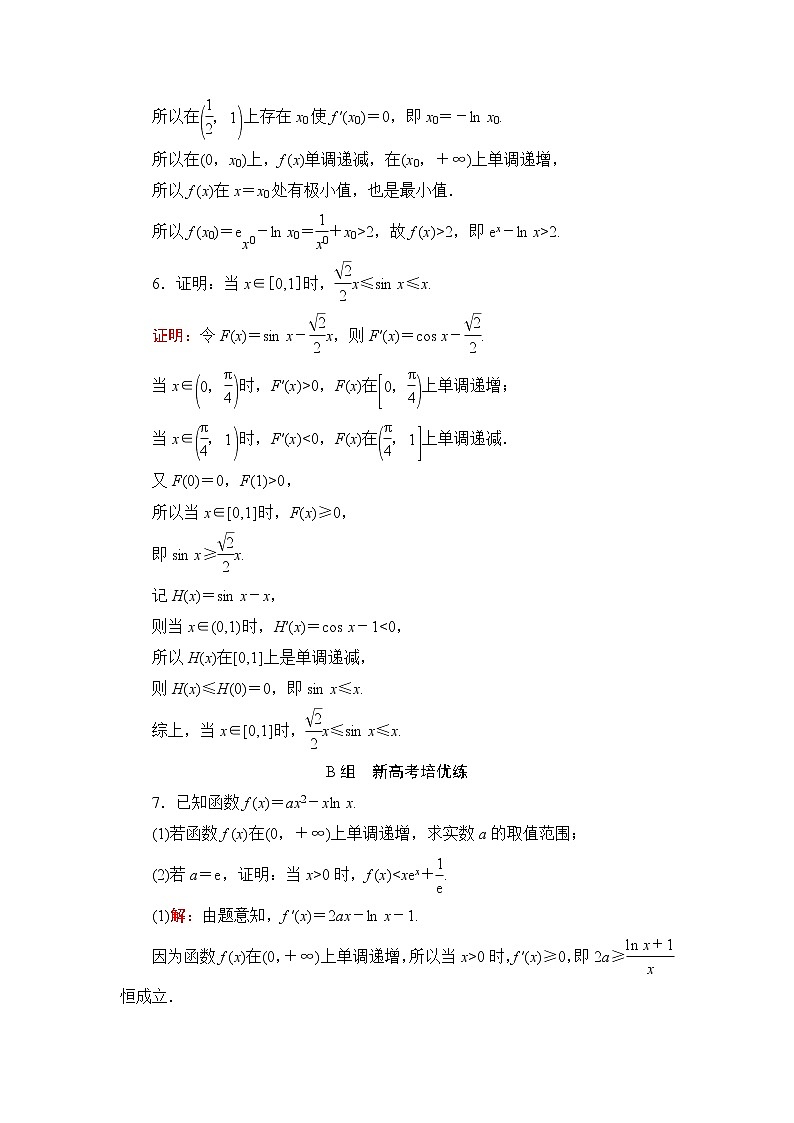 所以在(1/2，1)上存在 x₀使 f′(x₀)＝0，即 x₀＝－ln x₀.
所以在(0，x₀)上，f(x)单调递减，在(x₀，＋∞)上单调递增，
所以 f(x)在 x＝x₀处有极小值，也是最小值．
所以 f(x₀)＝e^x₀－ln x₀＝1/x₀＋x₀>2，故 f(x)>2，即 eˣ－ln x>2.
6．证明：当 x∈[0,1]时，√2/2x≤sin x≤x.
证明：令 F(x)＝sin x－√2/2x，则 F′(x)＝cos x－√2/2.
当 x∈(0，π/4)时，F′(x)>0，F(x)在[0，π/4)上单调递增；
当 x∈(π/4，1)时，F′(x)<0，F(x)在(π/4，1]上单调递减．
又 F(0)＝0，F(1)>0，
所以当 x∈[0,1]时，F(x)≥0，
即 sin x≥√2/2x.
记 H(x)＝sin x－x，
则当 x∈(0,1)时，H′(x)＝cos x－1<0，
所以 H(x)在[0,1]上是单调递减，
则 H(x)≤H(0)＝0，即 sin x≤x.
综上，当 x∈[0,1]时，√2/2x≤sin x≤x.
B 组　新高考培优练
7．已知函数 f(x)＝ax²－xln x.
(1)若函数 f(x)在(0，＋∞)上单调递增，求实数 a 的取值范围；
(2)若 a＝e，证明：当 x>0 时，f(x)<xeˣ＋1/e.
(1)解：由题意知，f′(x)＝2ax－ln x－1.
因为函数 f(x)在(0，＋∞)上单调递增，所以当 x>0 时，f′(x)≥0，即 2a≥(ln x＋1)/x
恒成立．